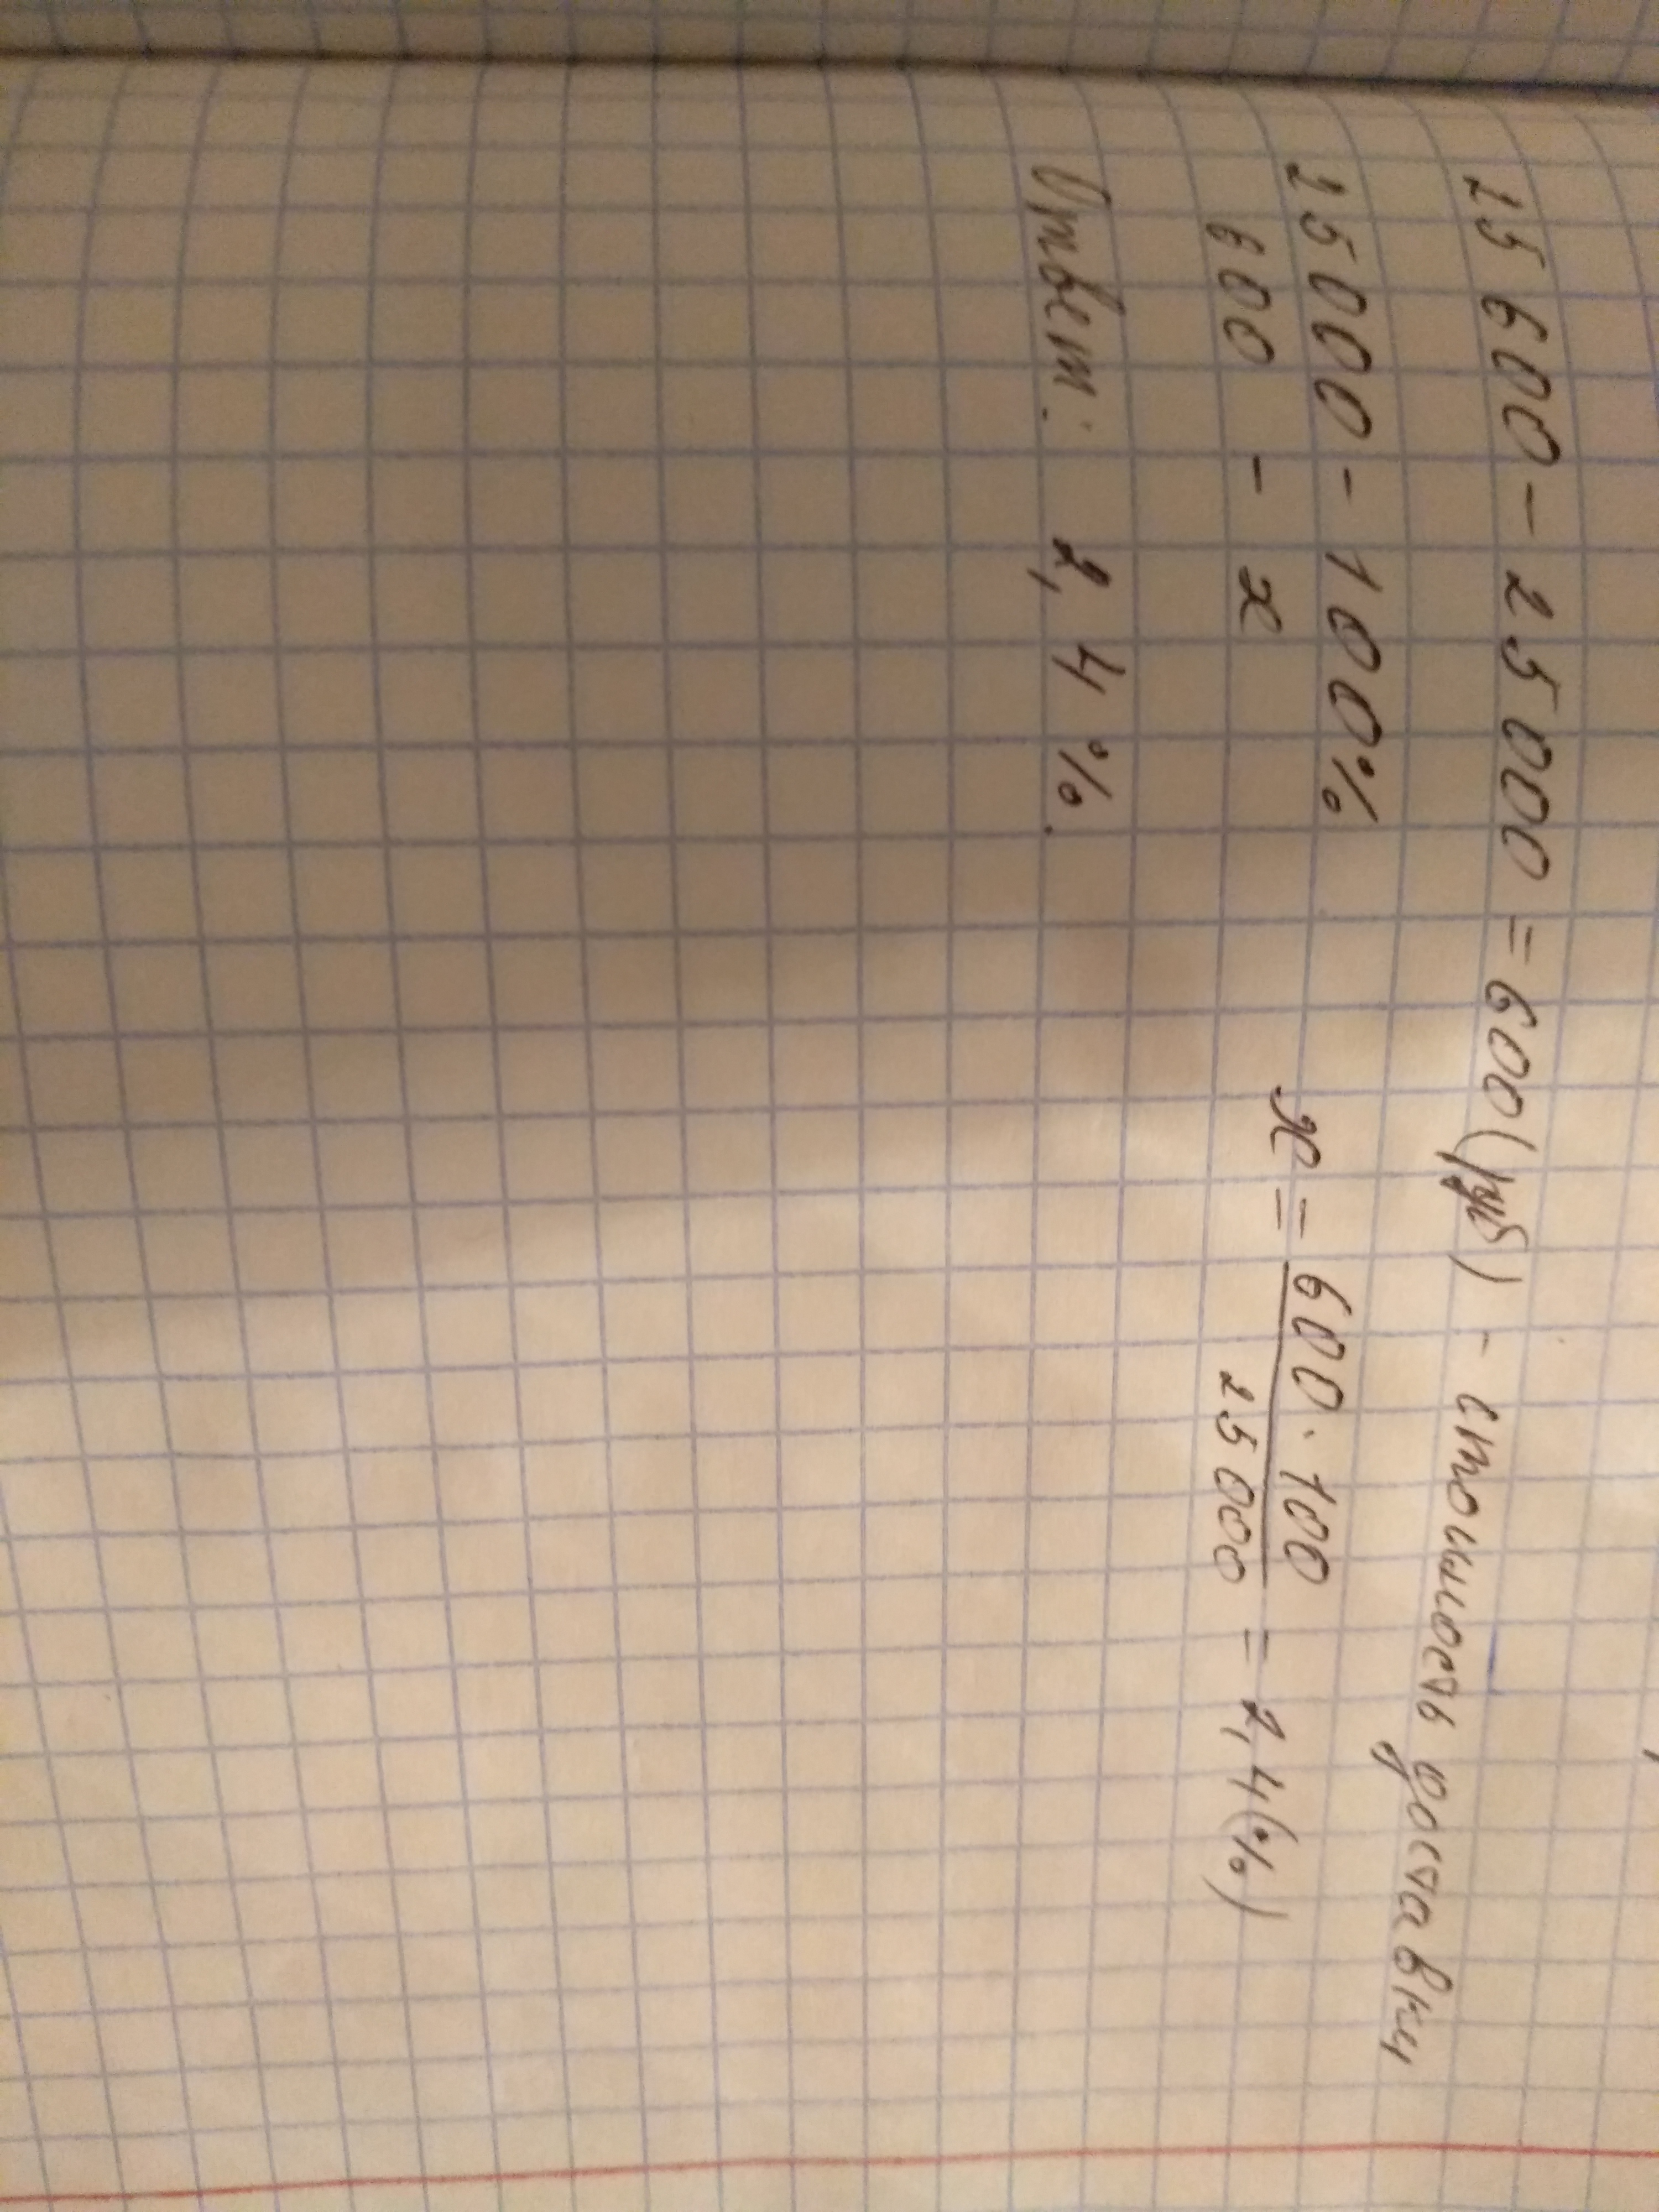 25600 - 25000 = 600 (руб) - стоимость доставки
25000 - 100%
600 - x
x = 600 · 100 / 25000 = 2,4 (%)
Ответ: 2,4 %.